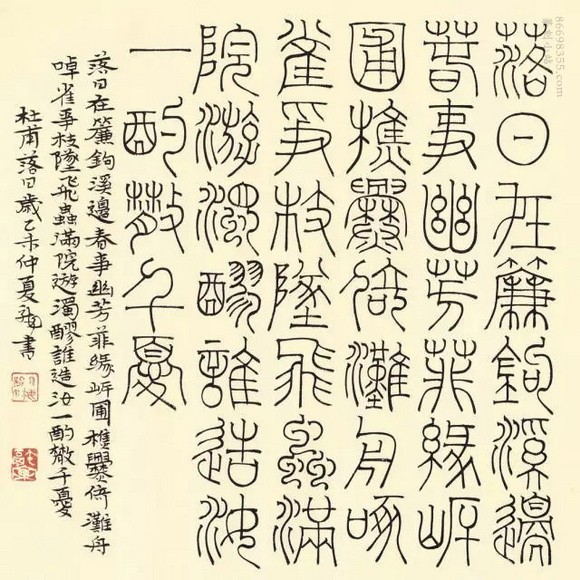 落日在簾鉤溪邊
春事幽芳菲緣岸
圃樵爨倚灘舟啄
雀爭枝墜飛蟲滿
院游濁醪誰造汝
一酌散千憂
落日在簾鉤溪邊春事幽芳菲緣岸圃樵爨倚灘舟
啅雀爭枝墜飛蟲滿院遊濁醪誰造汝一酌散千憂
杜甫落日歲乙未仲夏書
86698355.com